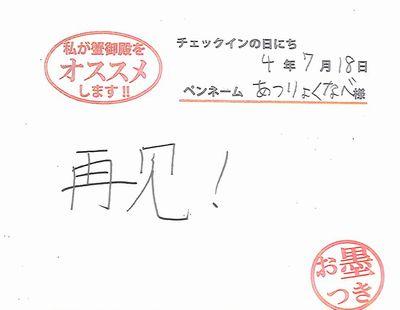 私が蟹御殿を
オススメ
します!!
チェックインの日にち
4年7月18日
ペンネーム あつりょくなべ様
再见!
お墨
つき